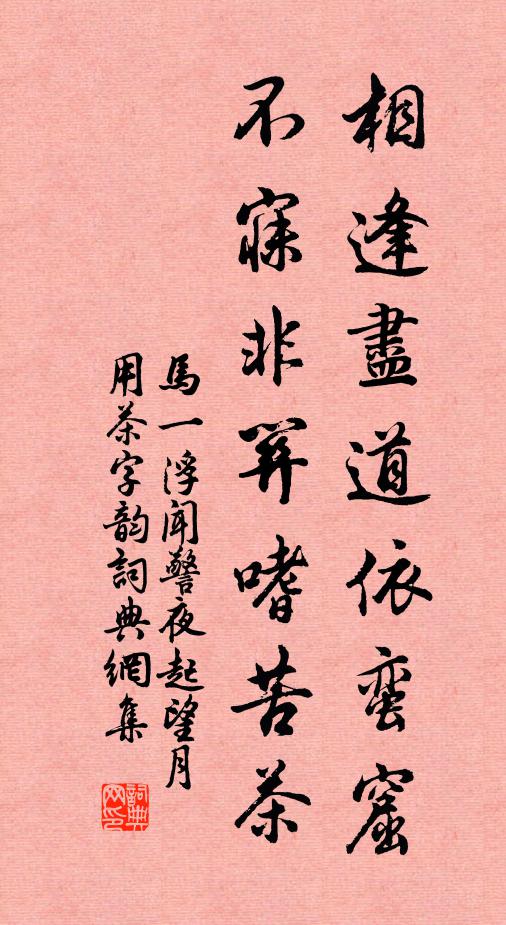 相逢盡道依蛮窟
不寐非関嗜苦茶
馬一浮聞警夜起望月
用茶字韵詞典網集
詞典网印